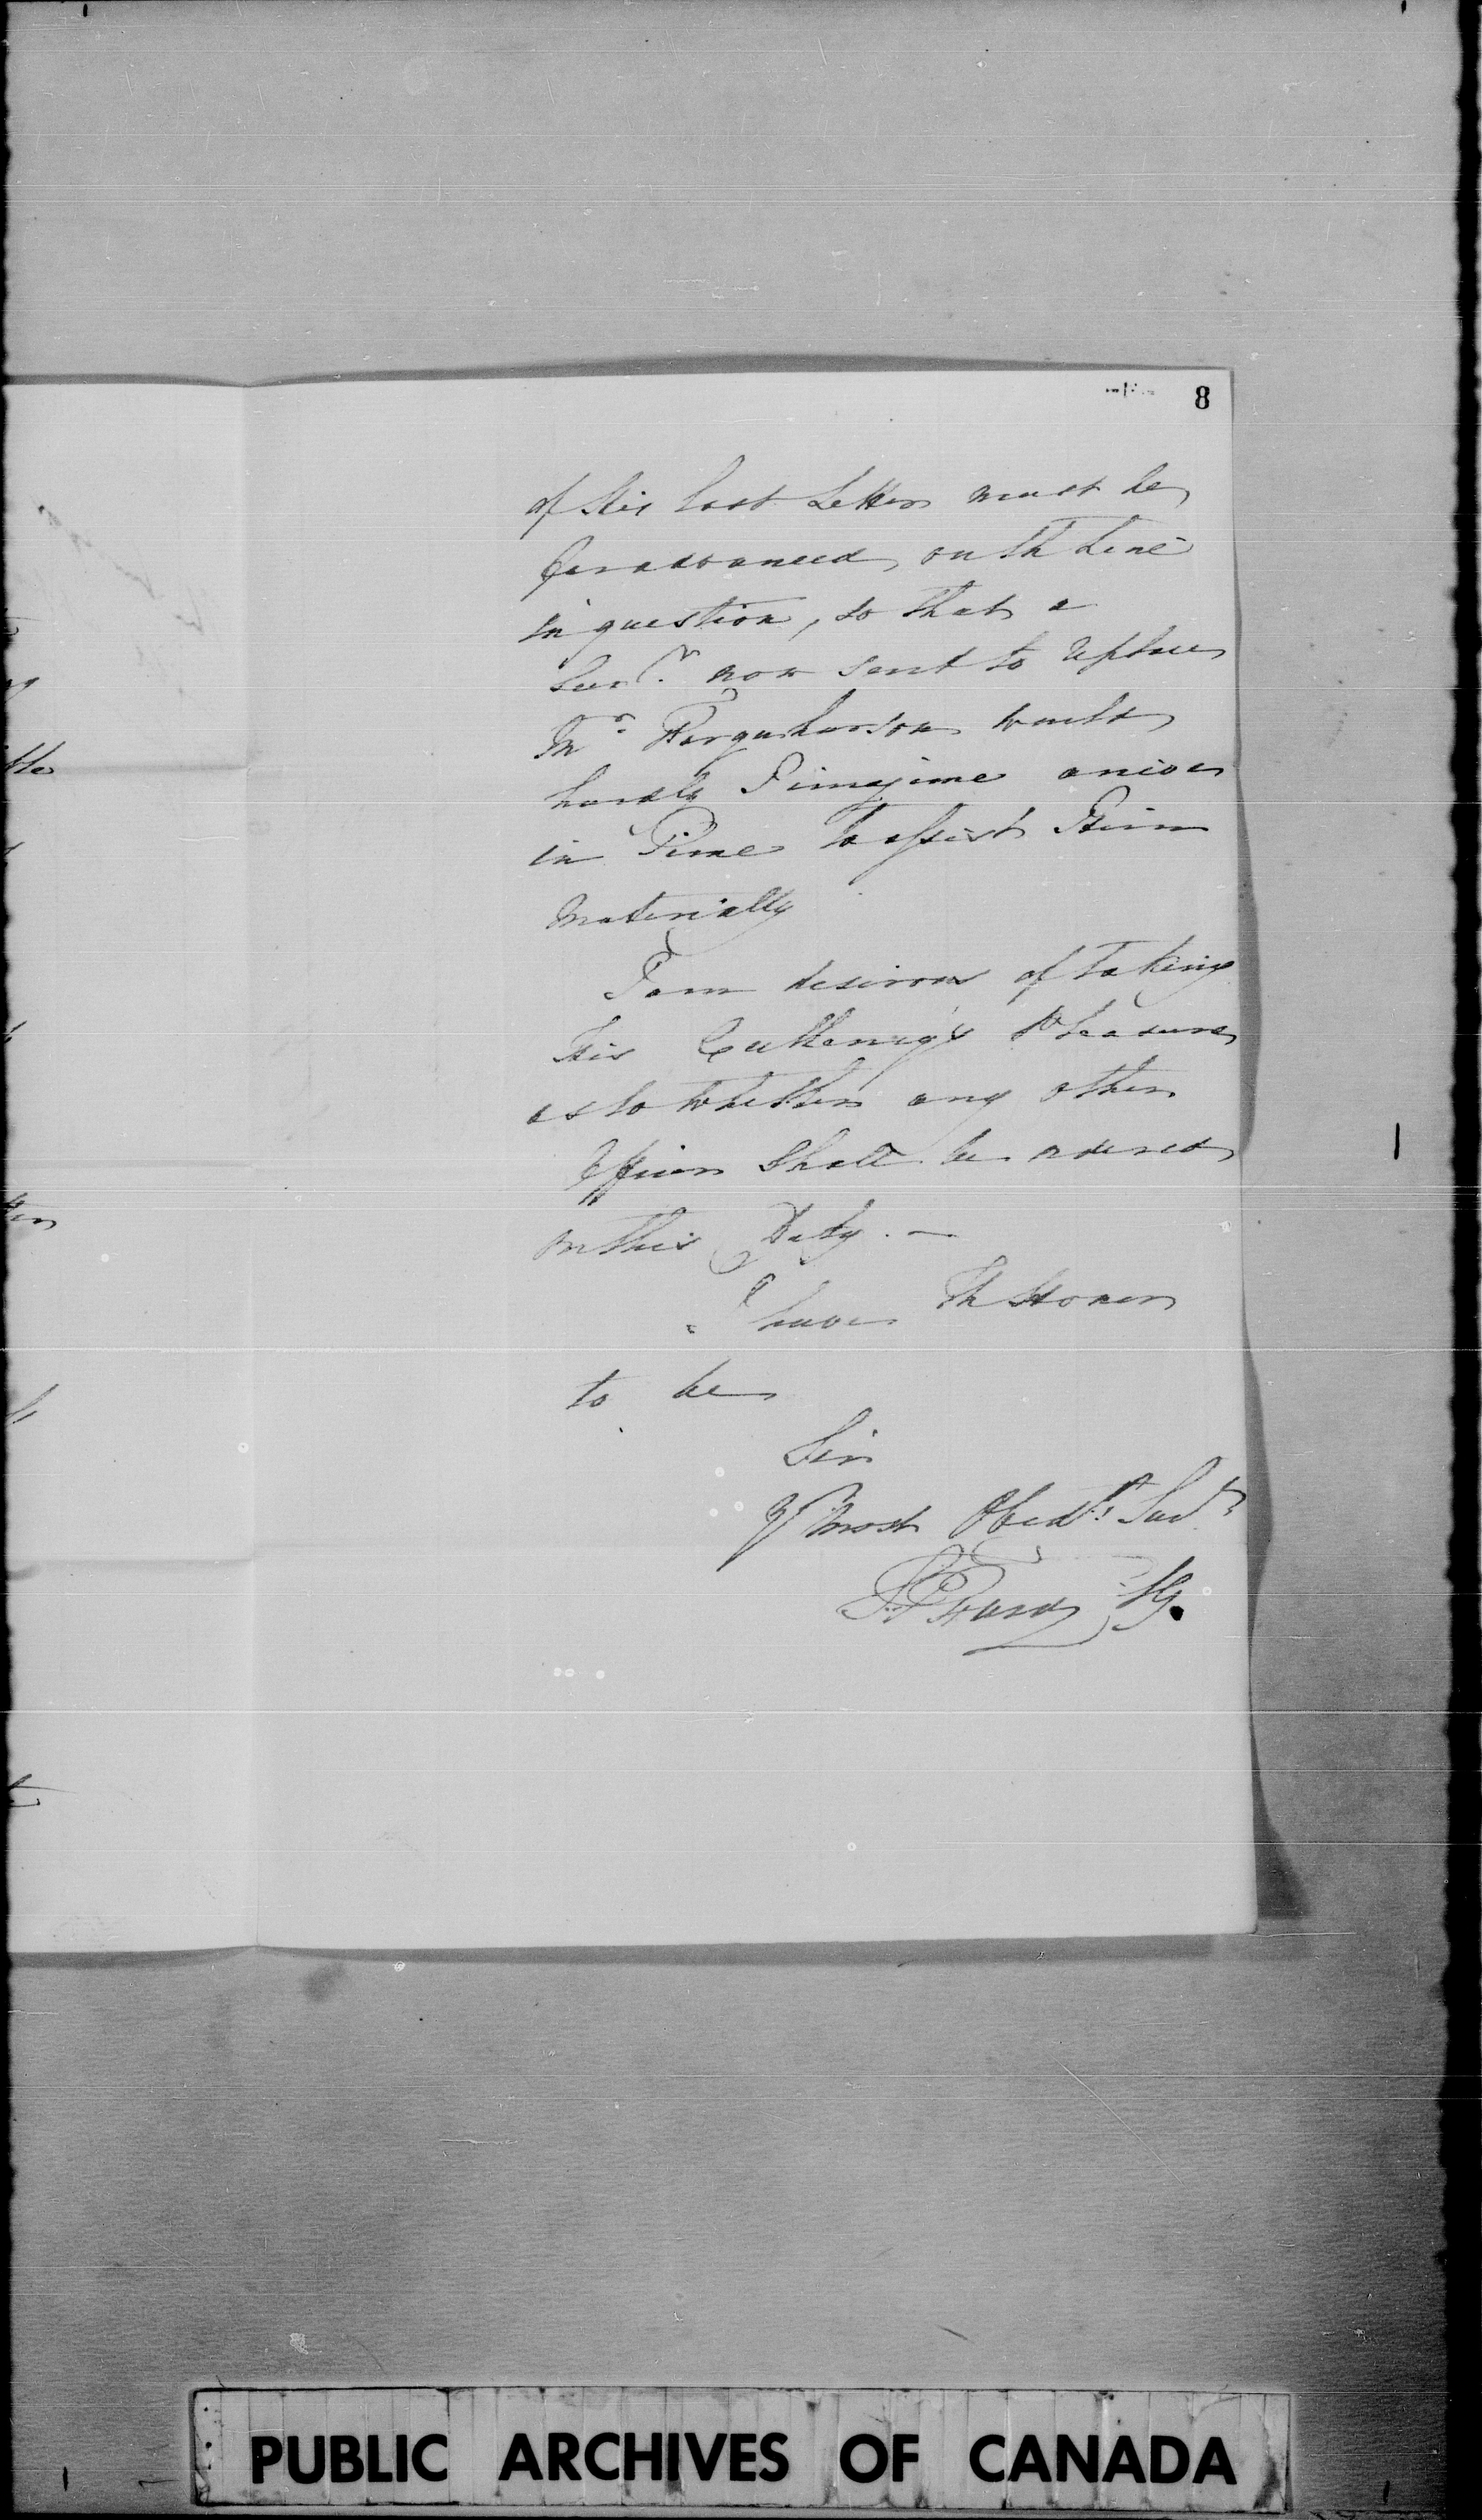 8
of His last Letter must be
far advanced, on th Line
in question, so that a
now sent to replace
Mr. Farquharson would
hardly I imagine arrive
in Time to assist Him
materially
I am desirous of taking
His Excellency's Pleasure
as to whether any other
Officer shall be ordered
on this Duty. —
I have Th Honor
to be
Sir
Yr most Obedt. Servt
PUBLIC ARCHIVES OF CANADA